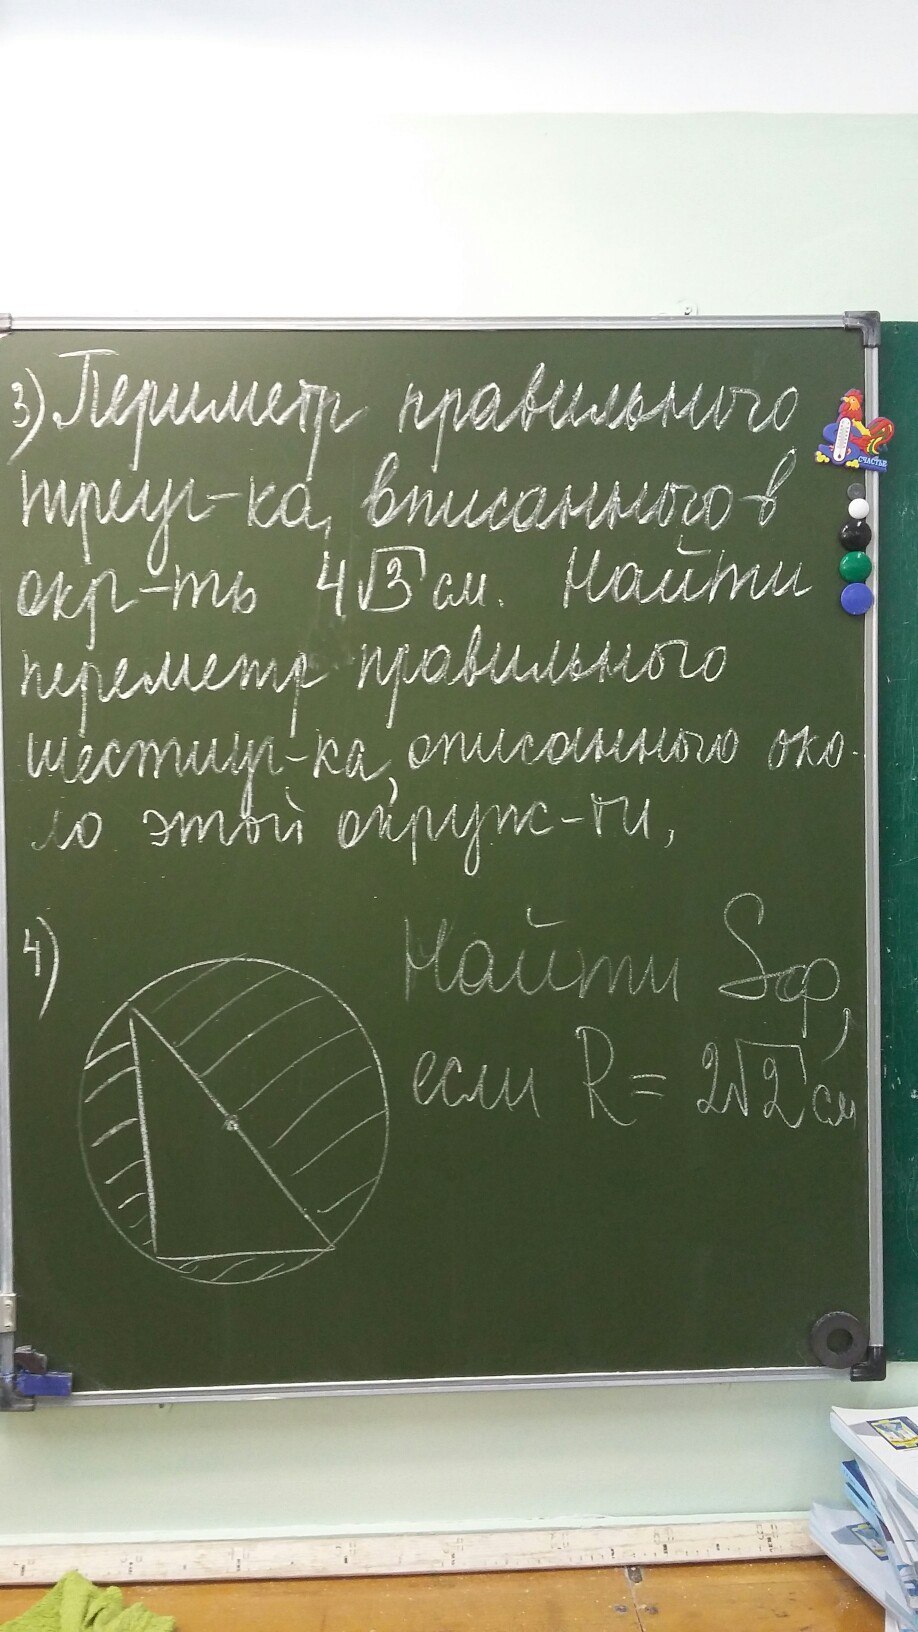 3) Периметр правильного
треуг-ка, вписанного в
окр-ть 4√3 см. Найти
переметр правильного
шестиуг-ка, описанного око-
ло этой окруж-ти,
4)
Найти Sф,
если R = 2√2 см
СЧАСТЬЕ